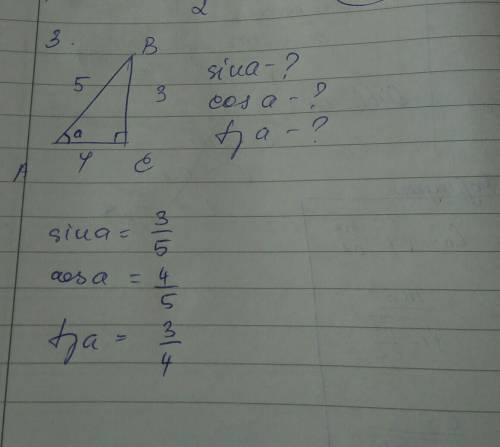 2
3.
B
5
3
a
4
A
C
sin a - ?
cos a - ?
tg a - ?
sin a = 3/5
cos a = 4/5
tg a = 3/4